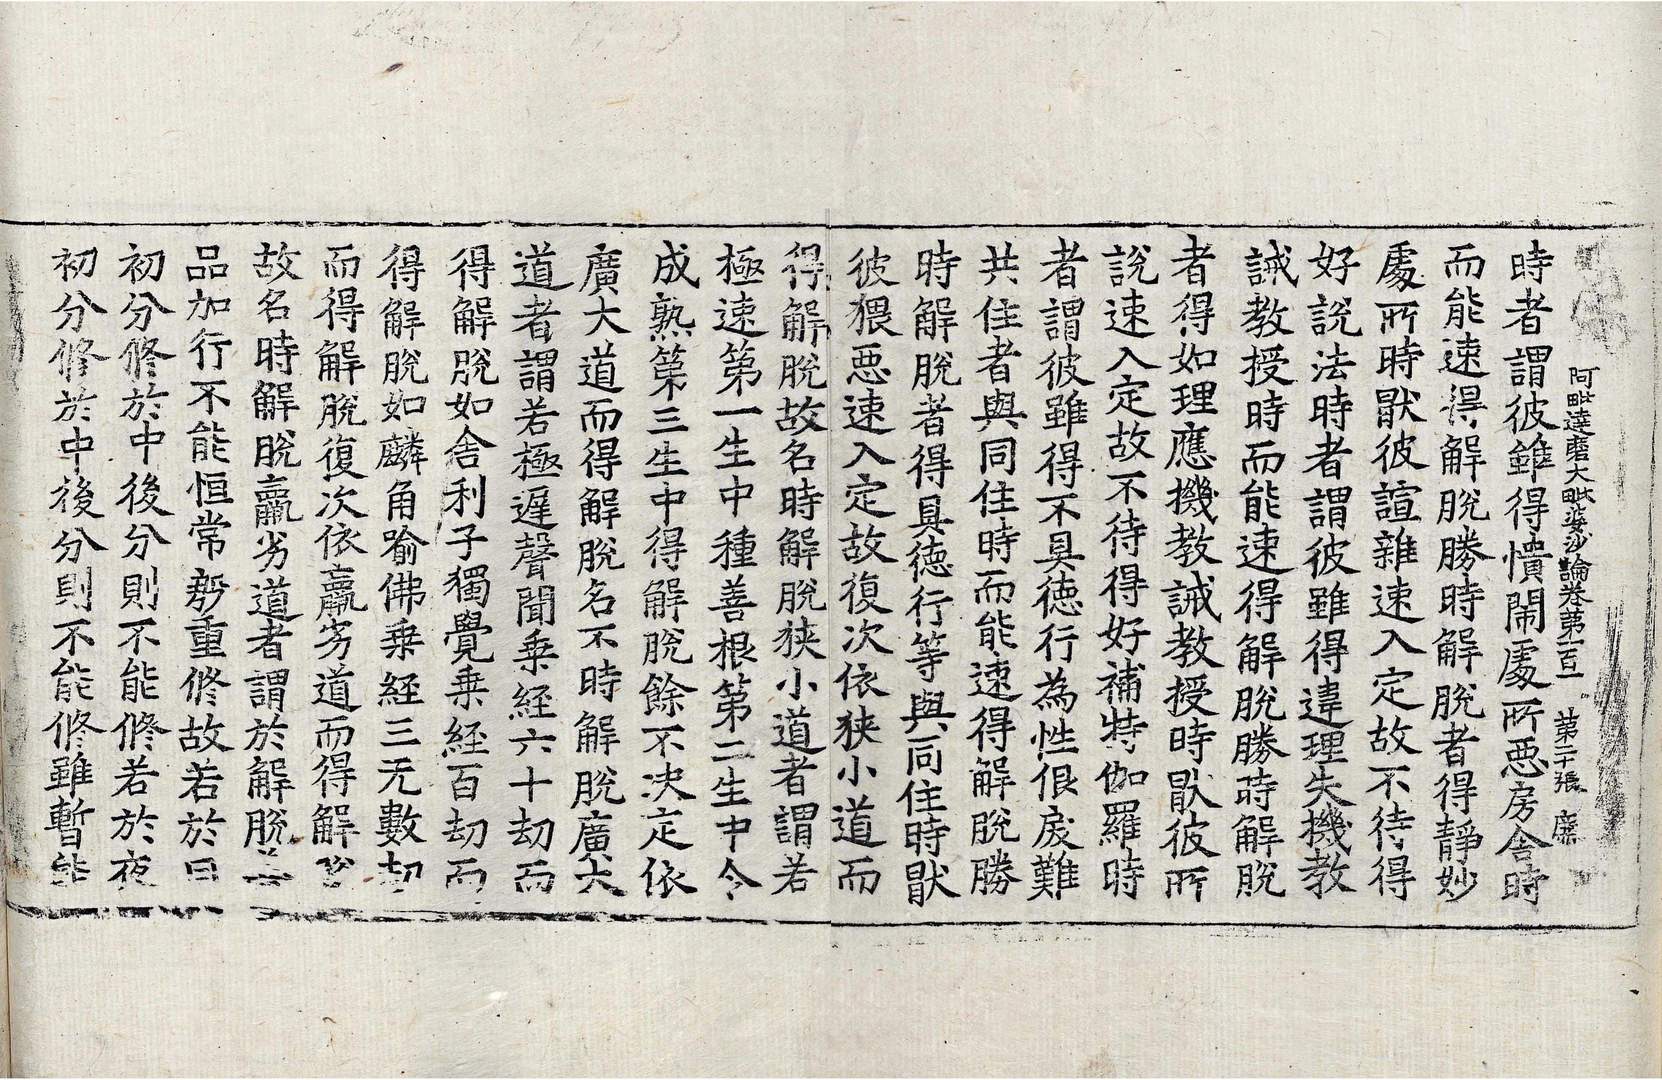 阿毗達磨大毗婆沙論卷第一百一 第二十張 廉
時者謂彼雖得憒閙處所惡房舍時
而能速得解脫勝時解脫者得靜妙
處所時猒彼諠雜速入定故不待得
好說法時者謂彼雖得違理失機教
誡教授時而能速得解脫勝時解脫
者得如理應機教誡教授時猒彼所
說速入定故不待得好補特伽羅時
者謂彼雖得不具徳行為性佷戾難
共住者與同住時而能速得解脫勝
時解脫者得具徳行等與同住時猒
彼猥惡速入定故復次依狹小道而
得解脫故名時解脫狹小道者謂若
極速第一生中種善根第二生中令
成熟第三生中得解脫餘不決定依
廣大道而得解脫名不時解脫廣大
道者謂若極遲聲聞乗經六十劫而
得解脫如舍利子獨覺乗經百劫而
得解脫如麟角喻佛乗經三无數劫
而得解脫復次依羸劣道而得解脫
故名時解脫羸劣道者謂於解脫善
品加行不能恒常殷重修故若於日
初分修於中後分則不能修若於夜
初分修於中後分則不能修雖暫能